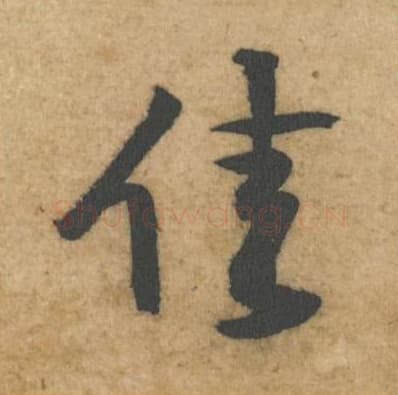 佳
shufawang.cn